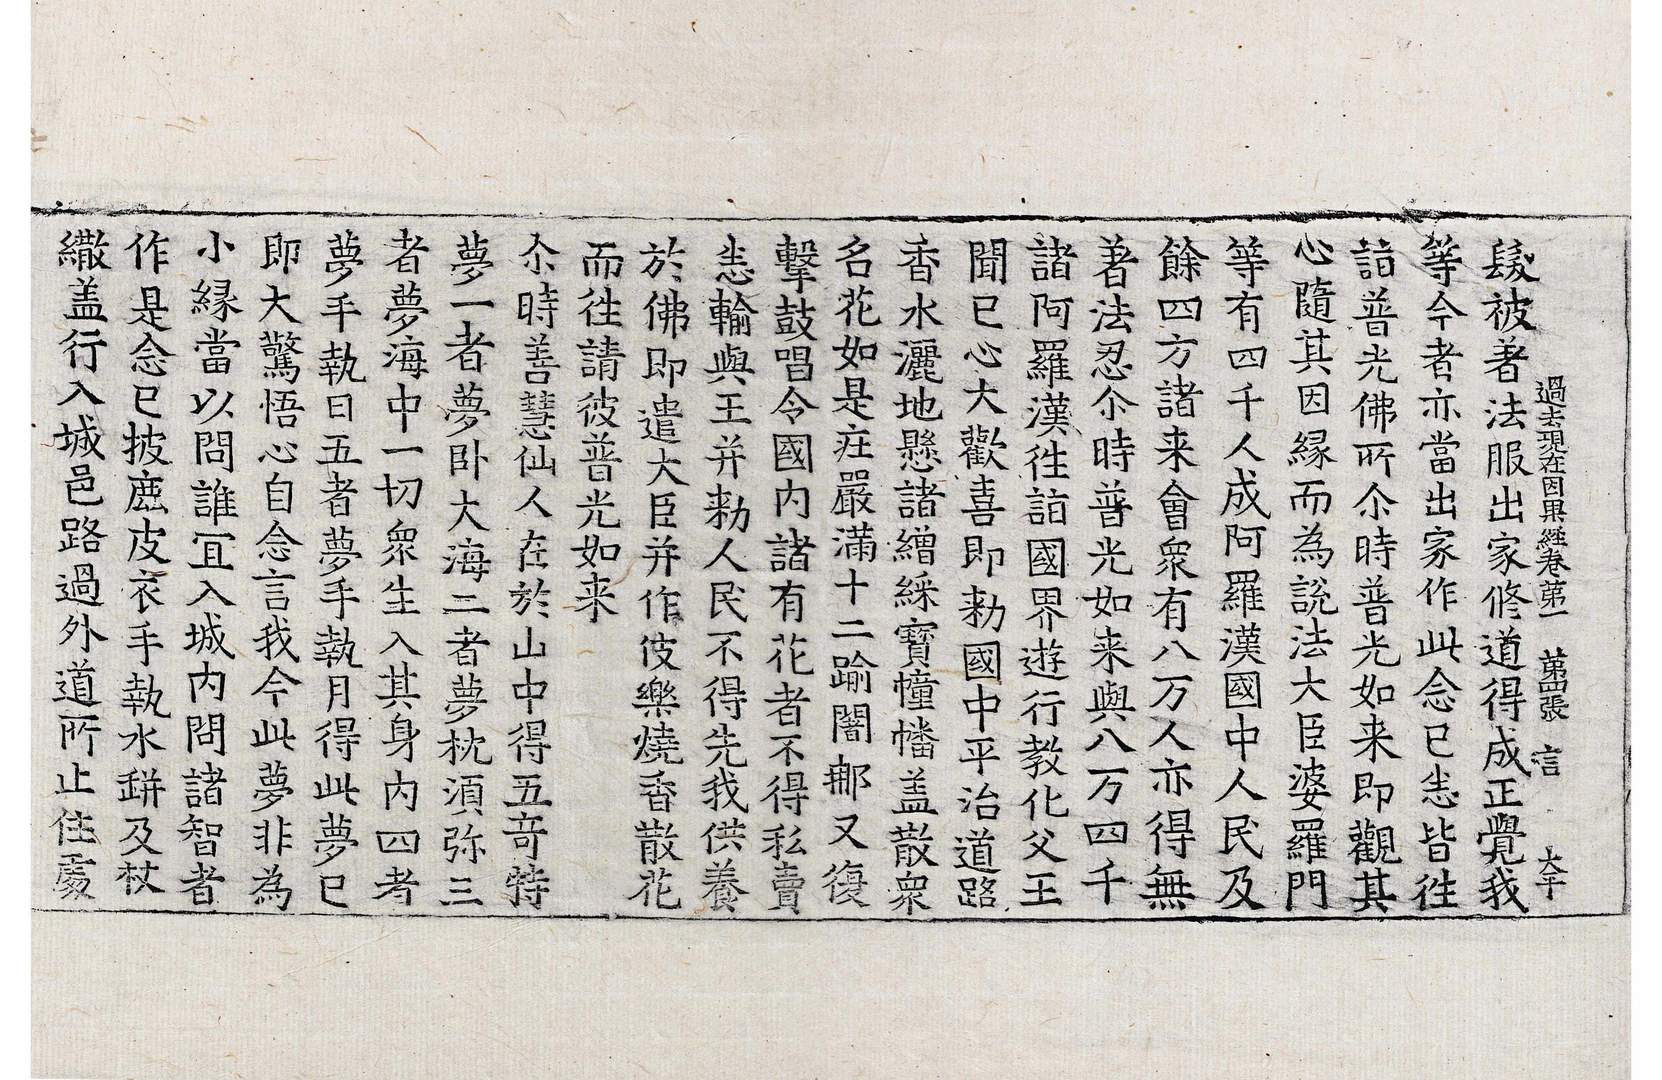 過去現在因果経卷第一　第四張　言　大才
髮被著法服出家修道得成正覺我
等今者亦當出家作此念已恚皆徃
詣普光佛所尒時普光如来即觀其
心隨其因縁而為説法大臣婆羅門
等有四千人成阿羅漢國中人民及
餘四方諸来會衆有八万人亦得無
著法忍尒時普光如来與八万四千
諸阿羅漢徃詣國界遊行教化父王
聞已心大歡喜即勑國中平治道路
香水灑地懸諸繒綵寳幢幡盖散衆
名花如是庄嚴滿十二踰闍那又復
擊鼓唱令國内諸有花者不得私賣
恚輸與王并勑人民不得先我供養
於佛即遣大臣并作伎樂燒香散花
而徃請彼普光如来
尒時善慧仙人在於山中得五竒特
夢一者夢卧大海二者夢枕湏弥三
者夢海中一切衆生入其身内四者
夢手執日五者夢手執月得此夢已
即大驚悟心自念言我今此夢非為
小縁當以問誰冝入城内問諸智者
作是念已披鹿皮衣手執水缾及杖
繖盖行入城邑路過外道所止住處